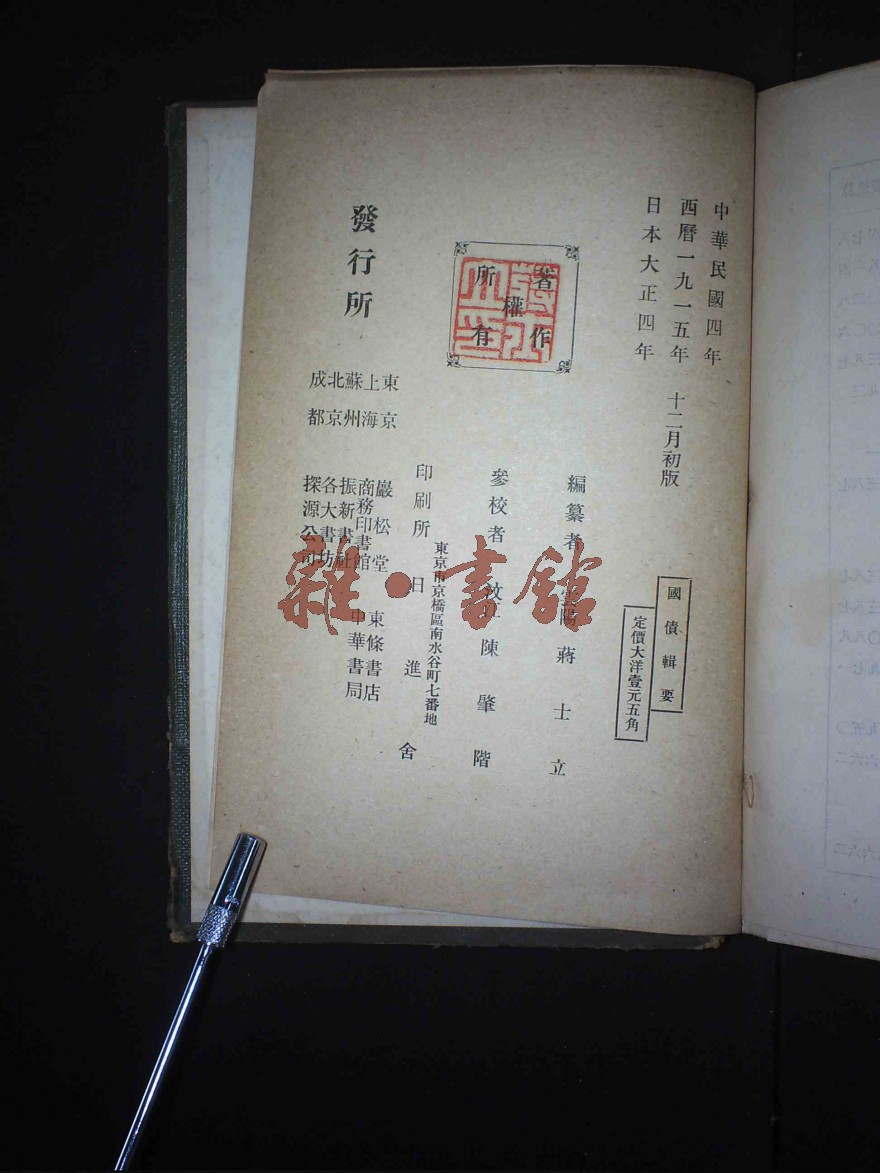 中華民國四年
西曆一九一五年 十二月初版
日本大正四年
國債輯要
定價大洋壹元五角
編纂者 雲陽 蔣士立
參校者 汶江 陳肇階
印刷所 東京市京橋區南水谷町七番地
日進舍
著作權所有
發行所
東京 巖松堂 東條書店
上海 商務印書館 中華書局
蘇州 振新書社
北京 各大書坊
成都 探源公司
雜·書館